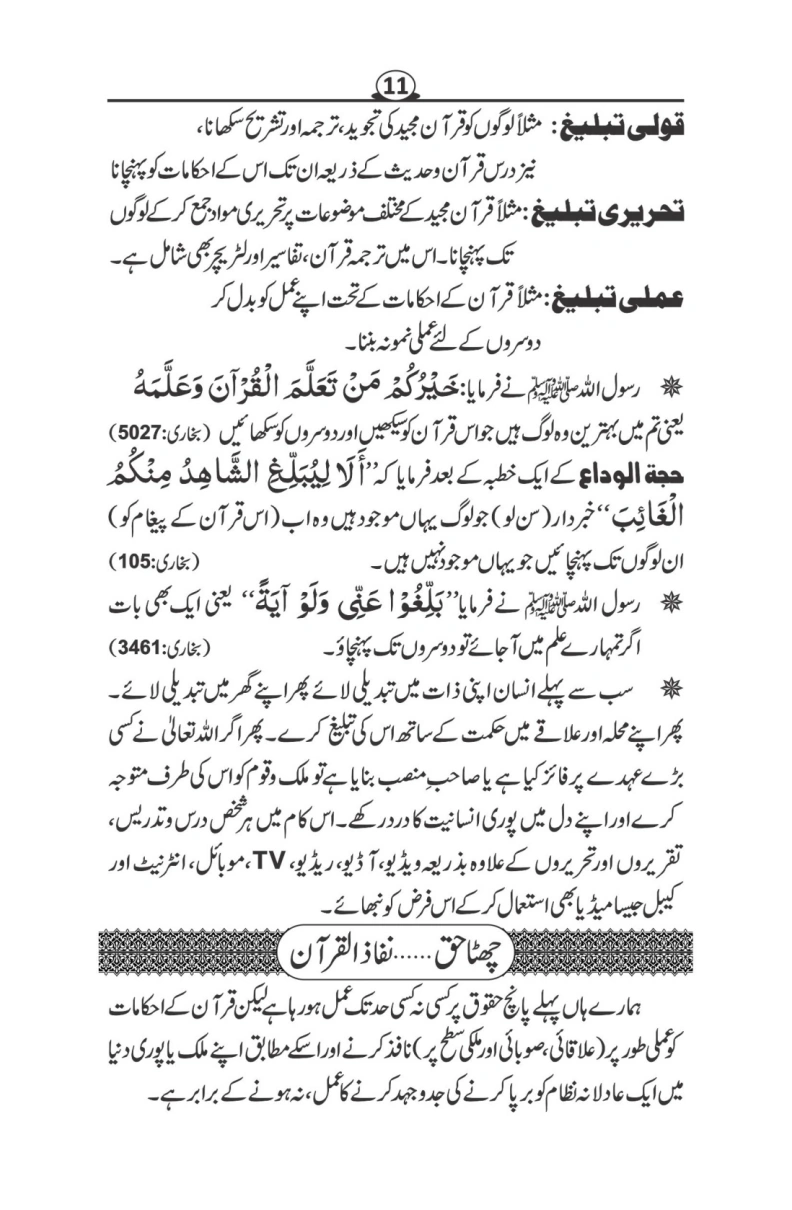 11
قولی تبلیغ: مثلاً لوگوں کو قرآن مجید کی تجوید، ترجمہ اور تشریح سکھانا،
نیز درس قرآن و حدیث کے ذریعہ ان تک اس کے احکامات کو پہنچانا
تحریری تبلیغ: مثلاً قرآن مجید کے مختلف موضوعات پر تحریری مواد جمع کر کے لوگوں
تک پہنچانا۔ اس میں ترجمہ قرآن، تفاسیر اور لٹریچر بھی شامل ہے۔
عملی تبلیغ: مثلاً قرآن کے احکامات کے تحت اپنے عمل کو بدل کر
دوسروں کے لئے عملی نمونہ بننا۔
❋ رسول اللہ ﷺ نے فرمایا: خَيْرُكُمْ مَنْ تَعَلَّمَ الْقُرْآنَ وَعَلَّمَهُ
یعنی تم میں بہترین وہ لوگ ہیں جو اس قرآن کو سیکھیں اور دوسروں کو سکھائیں (بخاری:5027)
حجۃ الوداع کے ایک خطبہ کے بعد فرمایا کہ ’’أَلَا لِيُبَلِّغِ الشَّاهِدُ مِنْكُمُ
الْغَائِبَ‘‘ خبردار (سن لو) جو لوگ یہاں موجود ہیں وہ اب (اس قرآن کے پیغام کو)
ان لوگوں تک پہنچائیں جو یہاں موجود نہیں ہیں۔ (بخاری:105)
❋ رسول اللہ ﷺ نے فرمایا ’’بَلِّغُوْا عَنِّی وَلَوْ آیَةً‘‘ یعنی ایک بھی بات
اگر تمہارے علم میں آجائے تو دوسروں تک پہنچاؤ۔ (بخاری:3461)
❋ سب سے پہلے انسان اپنی ذات میں تبدیلی لائے پھر اپنے گھر میں تبدیلی لائے۔
پھر اپنے محلہ اور علاقے میں حکمت کے ساتھ اس کی تبلیغ کرے۔ پھر اگر اللہ تعالیٰ نے کسی
بڑے عہدے پر فائز کیا ہے یا صاحبِ منصب بنایا ہے تو ملک و قوم کو اس کی طرف متوجہ
کرے اور اپنے دل میں پوری انسانیت کا درد رکھے۔ اس کام میں ہر شخص درس و تدریس،
تقریروں اور تحریروں کے علاوہ بذریعہ ویڈیو، آڈیو، ریڈیو، TV، موبائل، انٹرنیٹ اور
کیبل جیسا میڈیا بھی استعمال کر کے اس فرض کو نبھائے۔
چھٹا حق ...... نفاذ القرآن
ہمارے ہاں پہلے پانچ حقوق پر کسی نہ کسی حد تک عمل ہو رہا ہے لیکن قرآن کے احکامات
کو عملی طور پر (علاقائی، صوبائی اور ملکی سطح پر) نافذ کرنے اور اسکے مطابق اپنے ملک یا پوری دنیا
میں ایک عادلانہ نظام کو برپا کرنے کی جدوجہد کرنے کا عمل، نہ ہونے کے برابر ہے۔